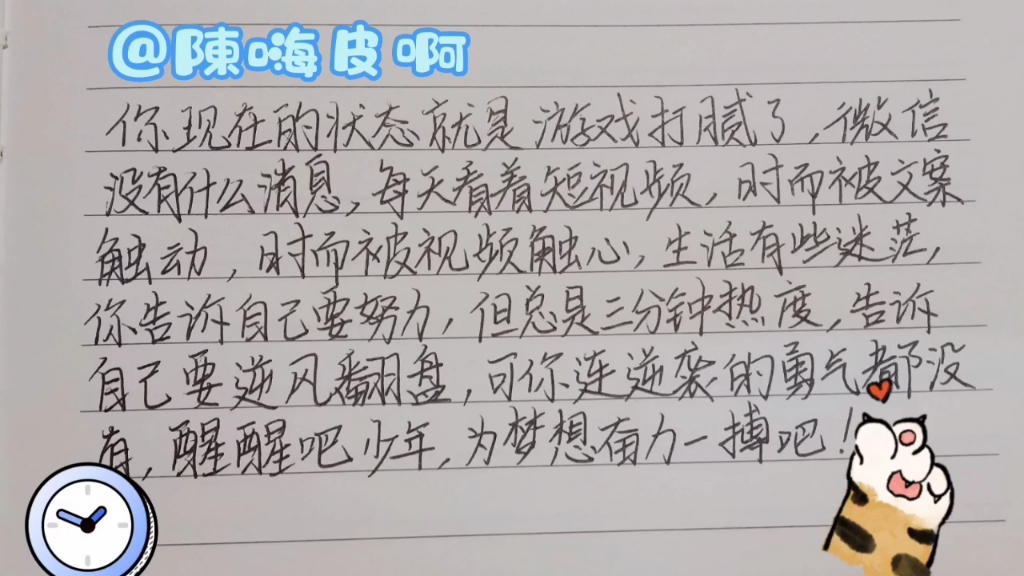 @陳嗨皮啊
你现在的状态就是游戏打腻了,微信
没有什么消息,每天看着短视频,时而被文案
触动,时而被视频触心,生活有些迷茫,
你告诉自己要努力,但总是三分钟热度,告诉
自己要逆风翻盘,可你连逆袭的勇气都没
有,醒醒吧少年,为梦想奋力一搏吧!